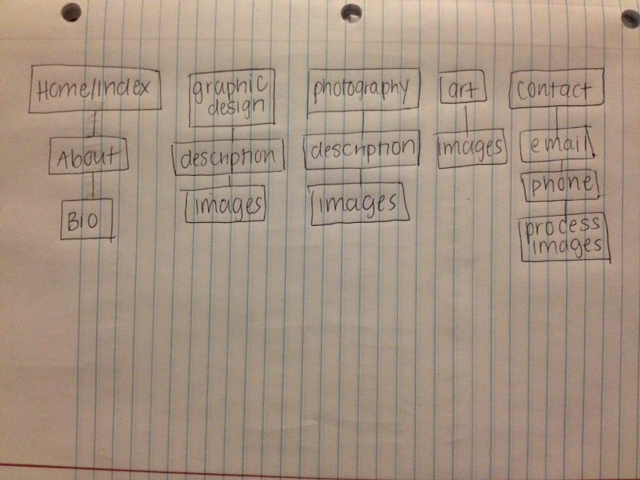 Home/Index
About
Bio
graphic
design
description
images
photography
description
images
art
images
contact
email
phone
process
images